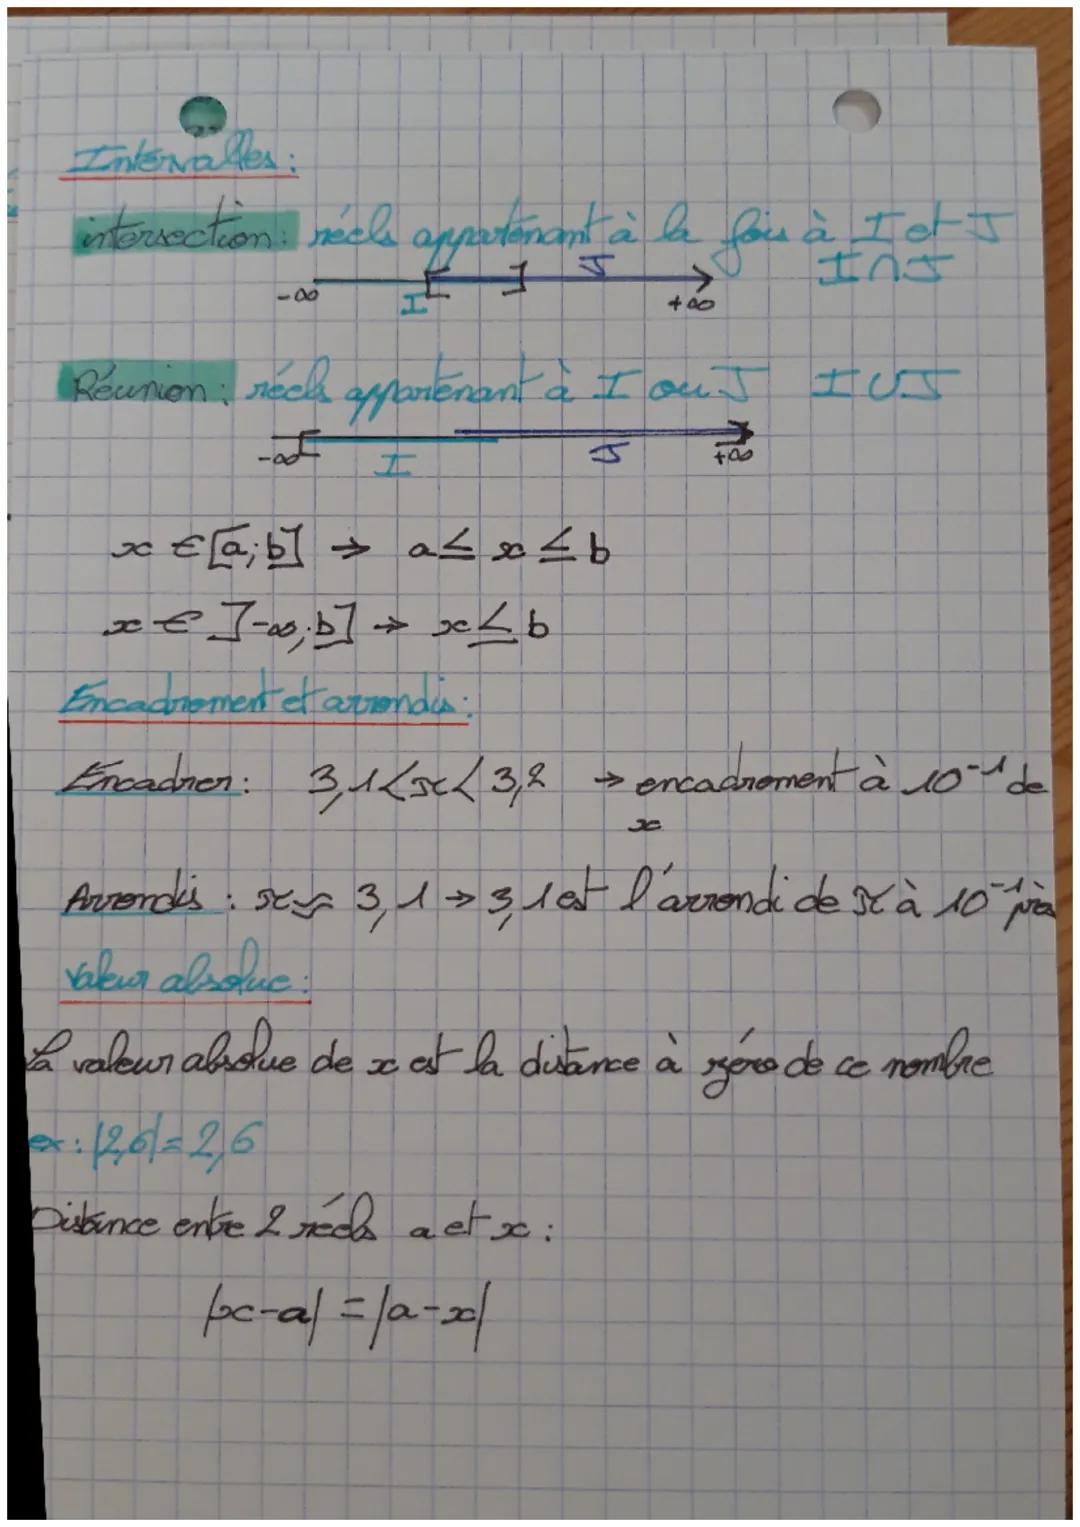 Intervalles :
intersection : réels appartenant à la fois à I et J
I ∩ J
J
-∞ I +∞
Réunion : réels appartenant à I ou J I ∪ J
-∞ I J +∞
x ∈ [a;b] → a ≤ x ≤ b
x ∈ ]-∞;b] → x ≤ b
Encadrement et arrondis :
Encadrer : 3,1 < x < 3,2 → encadrement à 10⁻¹ de
x
Arrondis : x ≈ 3,1 → 3,1 est l'arrondi de x à 10⁻¹ près
Valeur absolue :
La valeur absolue de x est la distance à zéro de ce nombre
ex : |2,6| = 2,6
Distance entre 2 réels a et x :
|x-a| = |a-x|